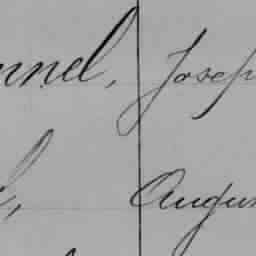 nnel, Josep
l, Augus